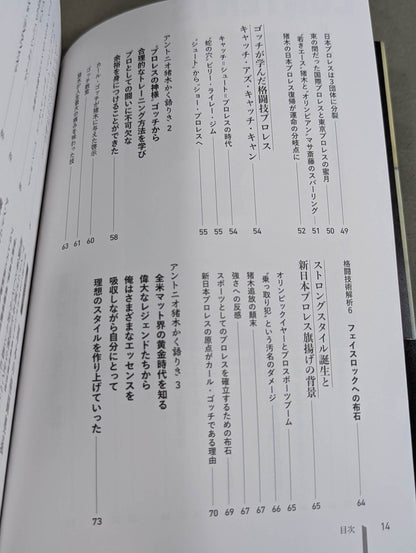 日本プロレスは3団体に分裂 49
束の間だった国際プロレスと東京プロレスの蜜月 50
“若きエース”猪木と、オリンピアン・マサ斎藤のスパーリング 51
猪木の日本プロレス復帰が運命の分岐点に 52
ゴッチが学んだ格闘技プロレス
キャッチ・アズ・キャッチ・キャン 54
キャッチ=シュート・プロレスの時代 54
“蛇の穴”ビリー・ライレー・ジム 55
“シュート”から“ショー”プロレスへ 55
アントニオ猪木かく語りき 2
“プロレスの神様”ゴッチから
合理的なトレーニング方法を学び
プロとしての闘いに不可欠な
余裕を身につけることができた 58
カール・ゴッチが猪木に与えた啓示 60
ゴッチ教室 61
猪木が人生最大の痛みを味わった技 63
格闘技術解析6 フェイスロックへの布石 64
ストロングスタイル誕生と
新日本プロレス旗揚げの背景 65
オリンピックイヤーとプロスポーツブーム 65
“乗っ取り犯”という汚名のダメージ 66
猪木追放の顛末 67
強さへの反感 67
スポーツとしてのプロレスを確立するための布石 69
新日本プロレスの原点がカール・ゴッチである理由 70
アントニオ猪木かく語りき 3
全米マット界の黄金時代を知る
偉大なレジェンドたちから
俺はさまざまなエッセンスを
吸収しながら自分にとって
理想のスタイルを作り上げていった 73
目次 14